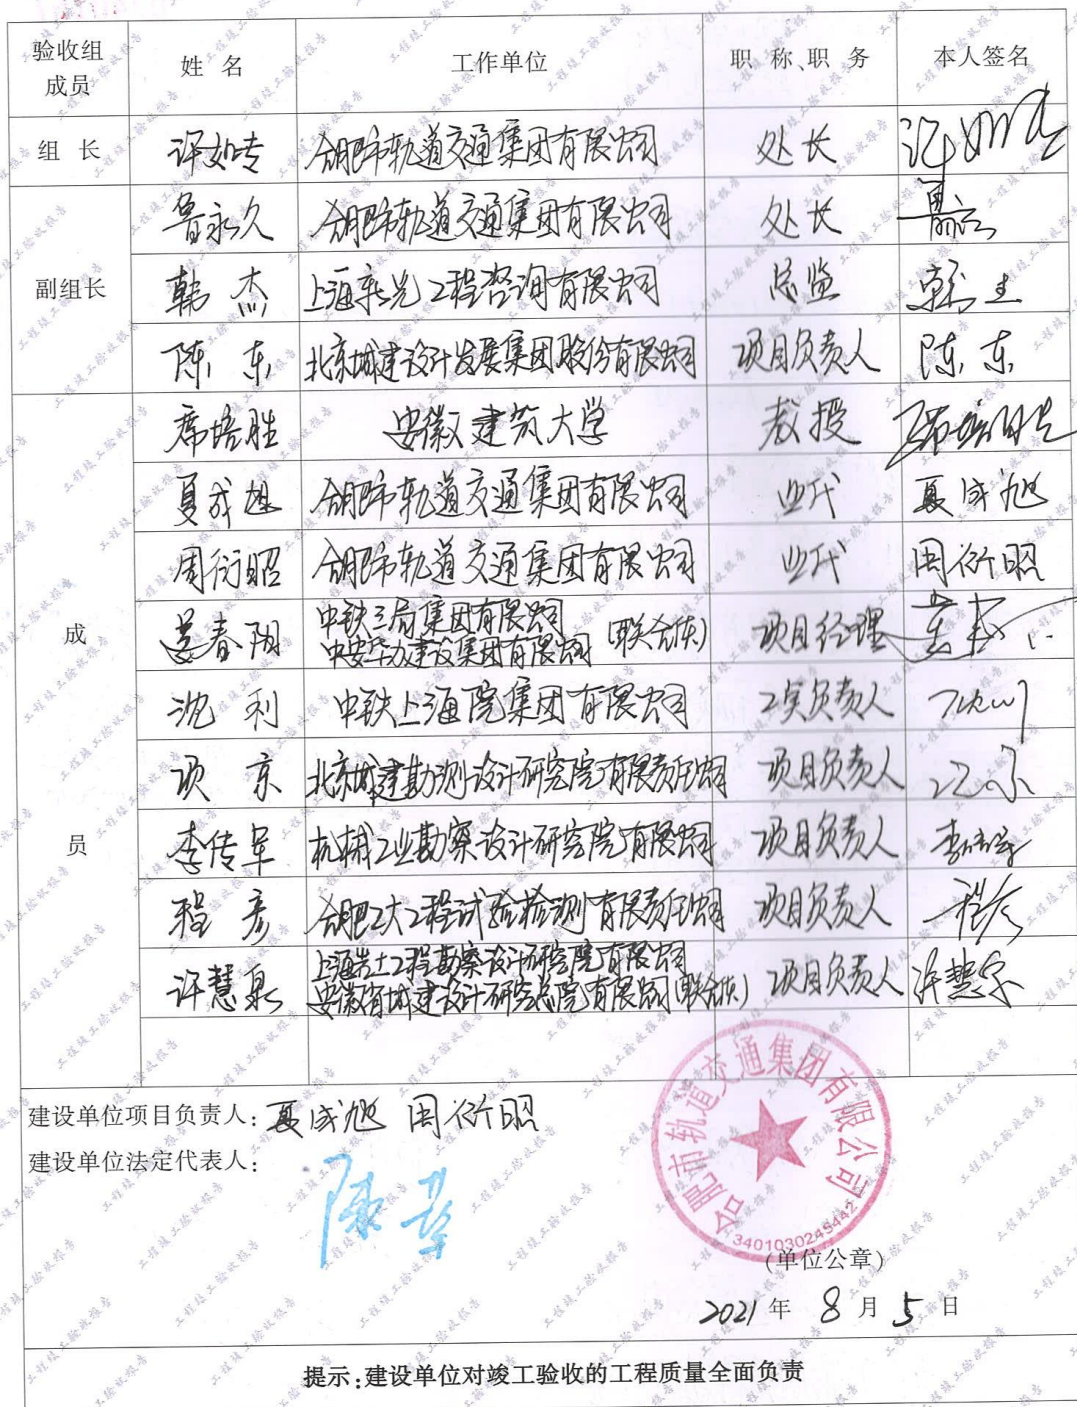 验收组成员 姓名 工作单位 职称、职务 本人签名
组长 许如专 合肥市轨道交通集团有限公司 处长
副组长
鲁永久 合肥市轨道交通集团有限公司 处长
韩杰 上海乘光工程咨询有限公司 总监 韩杰
陈东 北京城建设计发展集团股份有限公司 项目负责人 陈东
成员
席培胜 安徽建筑大学 教授 席培胜
夏成旭 合肥市轨道交通集团有限公司 业代 夏成旭
周衍昭 合肥市轨道交通集团有限公司 业代 周衍昭
春阳 中铁三局集团有限公司 项目经理
建设集团有限公司(联合体)
沈利 中铁上海院集团有限公司 负责人 沈利
项京 北京城建勘测设计研究院有限责任公司 项目负责人
李传军 机械工业勘察设计研究院有限公司 项目负责人
程彦 合肥工大工程试验检测有限责任公司 项目负责人 程彦
许慧泉 上海岩土工程勘察设计研究院有限公司 项目负责人 许慧泉
安徽省城建设计研究总院有限公司(联合体)
建设单位项目负责人: 夏成旭 周衍昭
建设单位法定代表人:
合肥市轨道交通集团有限公司
(单位公章)
2021年8月5日
提示:建设单位对竣工验收的工程质量全面负责
工程竣工验收报告